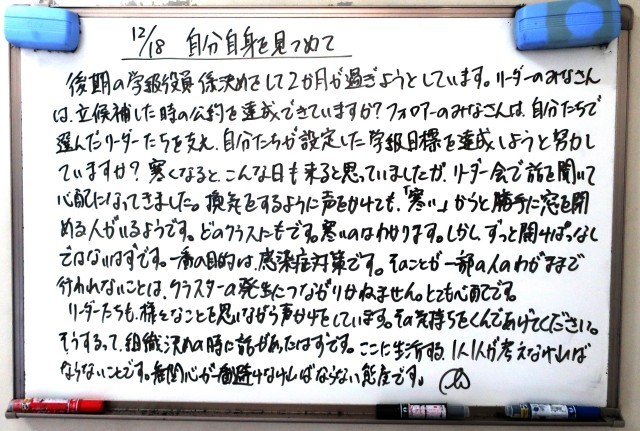 12/18 自分自身を見つめて
後期の学級役員係決めをして2か月が過ぎようとしています。リーダーのみなさん
は、立候補した時の公約を達成できていますか?フォロアーのみなさんは、自分たちで
選んだリーダーたちを支え、自分たちが設定した学級目標を達成しようと努力し
ていますか?寒くなると、こんな日も来ると思っていましたが、リーダー会で話を聞いて
心配になってきました。換気をするように声をかけても、「寒い」からと勝手に窓を閉
める人がいるようです。どのクラスにもです。寒いのはわかります。しかし、ずっと開けぱっなし
ではないはずです。一番の目的は、感染症対策です。そのことが一部の人のわがままで
行われないことは、クラスターの発生につながりかねません。とても心配です。
リーダーたちも、様々なことを思いながら声かけをしています。その気持ちをくんであげてください。
そうするって、組織決めの時に話があったはずです。ここに生活する、1人1人が考えなければ
ならないことです。無関心が一番避けなければならない態度です。